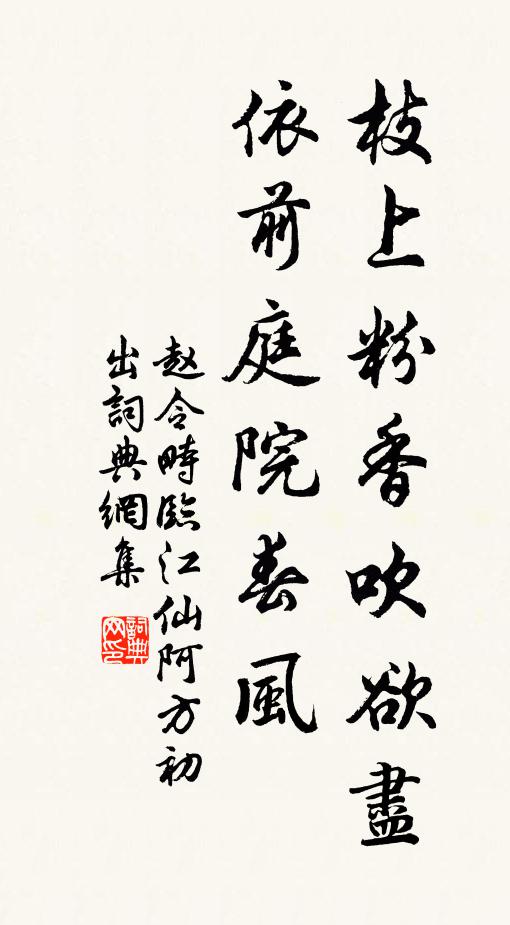 枝上粉香吹欲盡
依前庭院春風
赵令畤臨江仙阿方初
出詞典網集
詞典網印